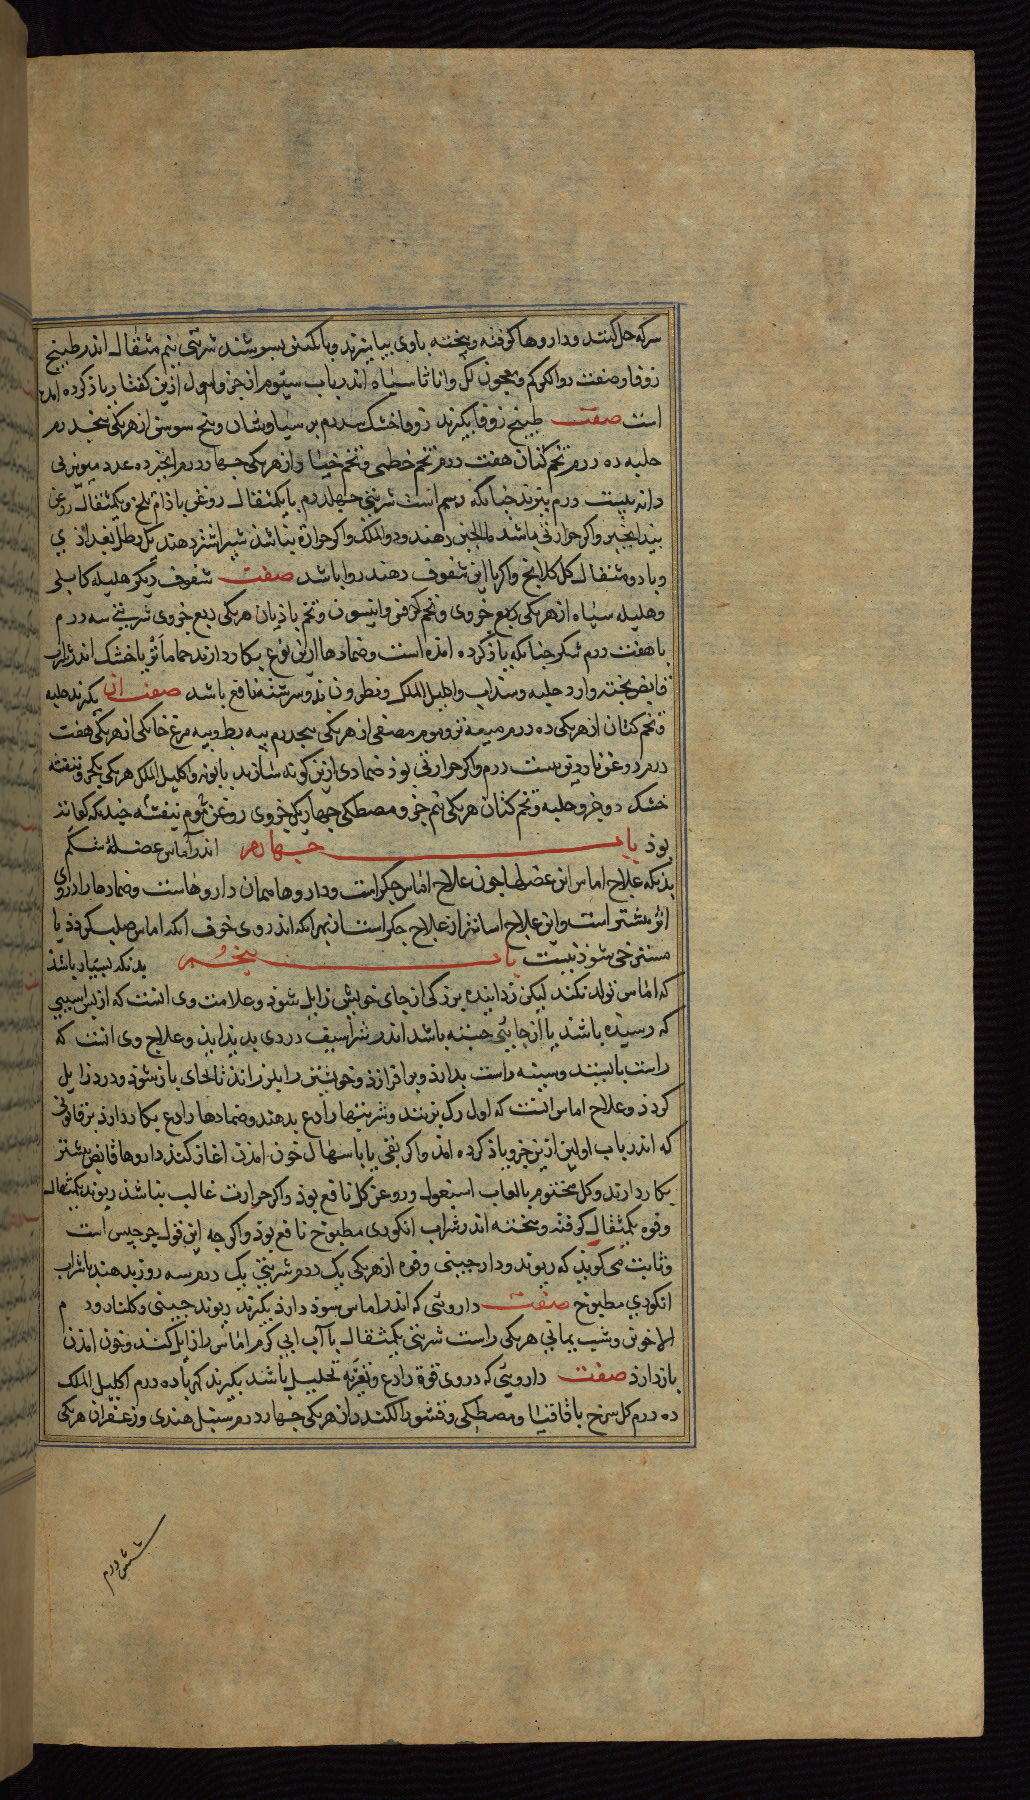 سرکه حل کنند و داروها کوفته و پخته باوی بیامیزند و بانکبین بسرشند شربتی نیم مثقال اندر طبیخ
زوفا و صفت دوالکرکم و معجون لک و اثاناسیاه اندر باب سیوم از جزو اول ازین کفتار یاذ کرده امده
است صفت طبیخ زوفا بکیرند زوفا خشک سه درم پرسیاوشان و بیخ سوسن از هریکی پنجدرم
حلبه ده درم تخم کتان هفت درم تخم خطمی و تخم خیار از هریکی چهار درم انجیر ده عدد میویز بی
دانه بیست درم بپزند چنانکه رسم است شربتی چهل درم با یکمثقال روغن باذام تلخ و یکمثقال روغن
بیدانجیر واکر حرارتی باشد ماالجبن دهند و دوالملک واکر حرارة نباشذ شیر اشتر دهند یک رطل بغداذی
و با دو مثقال کلکلانج واکر با این سفوف دهند روا باشد صفت سفوف دیکر هلیله کابلی
و هلیله سیاه از هریکی ربع جزوی و تخم کرفس و انیسون و تخم باذیان هریکی ربع جزوی شربتی سه درم
با هفت درم شکر چنانکه یاذ کرده امده است و ضمادها ازین نوع بکار دارند حماما تر یا خشک اندر شراب
قابض پخته و ارد حلبه و سنداب و اکلیل الملک و نطرون بذو سرشته نافع باشد صفت ان بکیرند حلبه
و تخم کتان از هریکی ده درم میعه تر و موم مصفی از هریکی پنجدرم پیه بط و پیه مرغ خانکی از هریکی هفت
درم روغن ناردین بیست درم واکر حرارتی بوذ ضمادی ازین کونه سازند بابونه و اکلیل الملک هریکی یکجزو بنفشه
خشک دو جزو حلبه و تخم کتان هریکی نیم جزو مصطکی چهار یک جزوی روغن و موم بنفشه چندانکه کفایت
بوذ باب چهارم اندر آماس عضلهٔ شکم
بذانکه علاج اماس این عضلها چون علاج اماس جکر است و داروها همان داروهاست و ضمادها را در وی
اثر بیشتر است و این علاج اسانتر از علاج جکر است از بهر انکه اندر وی خوف انکه اماس صلب کردذ یا
مسترخی شوذ نیست باب پنجم بدانکه بسیار باشد
که اماس تولد نکند لیکن زداینده بزرکی از جای خویش زایل شوذ و علامت وی انست که از پس اسیبی
که رسیده باشد یا از جایی جسته باشد اندر شراسیف دردی پدید اید و علاج وی انست که
راست بایستد و سینه راست بدارد و برافرازد و خویشتن را بلرزاند تا بجای باز شود و درد زایل
کردذ و علاج اماس انست که اول رک بزنند و شربتها رادع بدهند و ضمادها رادع بکار دارند بر قانونی
که اندر باب اولین ازین جزو یاذ کرده امد واکر بقی یا باسهال خون امدن اغاز کند داروها قابض بیشتر
بکار دارند و کل مختوم بالعاب اسبغول و روغن کل نافع بوذ واکر حرارت غالب نباشد ریوند یکمثقال
و فوه یکمثقال کوفته و پخته اندر شراب انکوری مطبوخ نافع بوذ واکرچه این قول جرجیس است
و ثابت می کوید که ریوند و دارچینی و فوه از هریکی یک درم شربتی یک درم سه روز بدهند با شراب
انکوری مطبوخ صفت داروئی که اندر اماس سوذ دارد بکیرند ریوند چینی و کلنار و دم
الاخوین و شب یمانی هریکی راست شربتی یکمثقال با آب ابی کرم اماس را زایل کند و خون امدن
بازدارد صفت داروئی که در وی قوة رادع و تعریه تحلیل باشد بکیرند کهربا ده درم اکلیل الملک
ده درم کل سرخ با قاقیا و مصطکی و قشور الکندر از هریکی چهار درم سنبل هندی و زعفران هریکی
شش درم